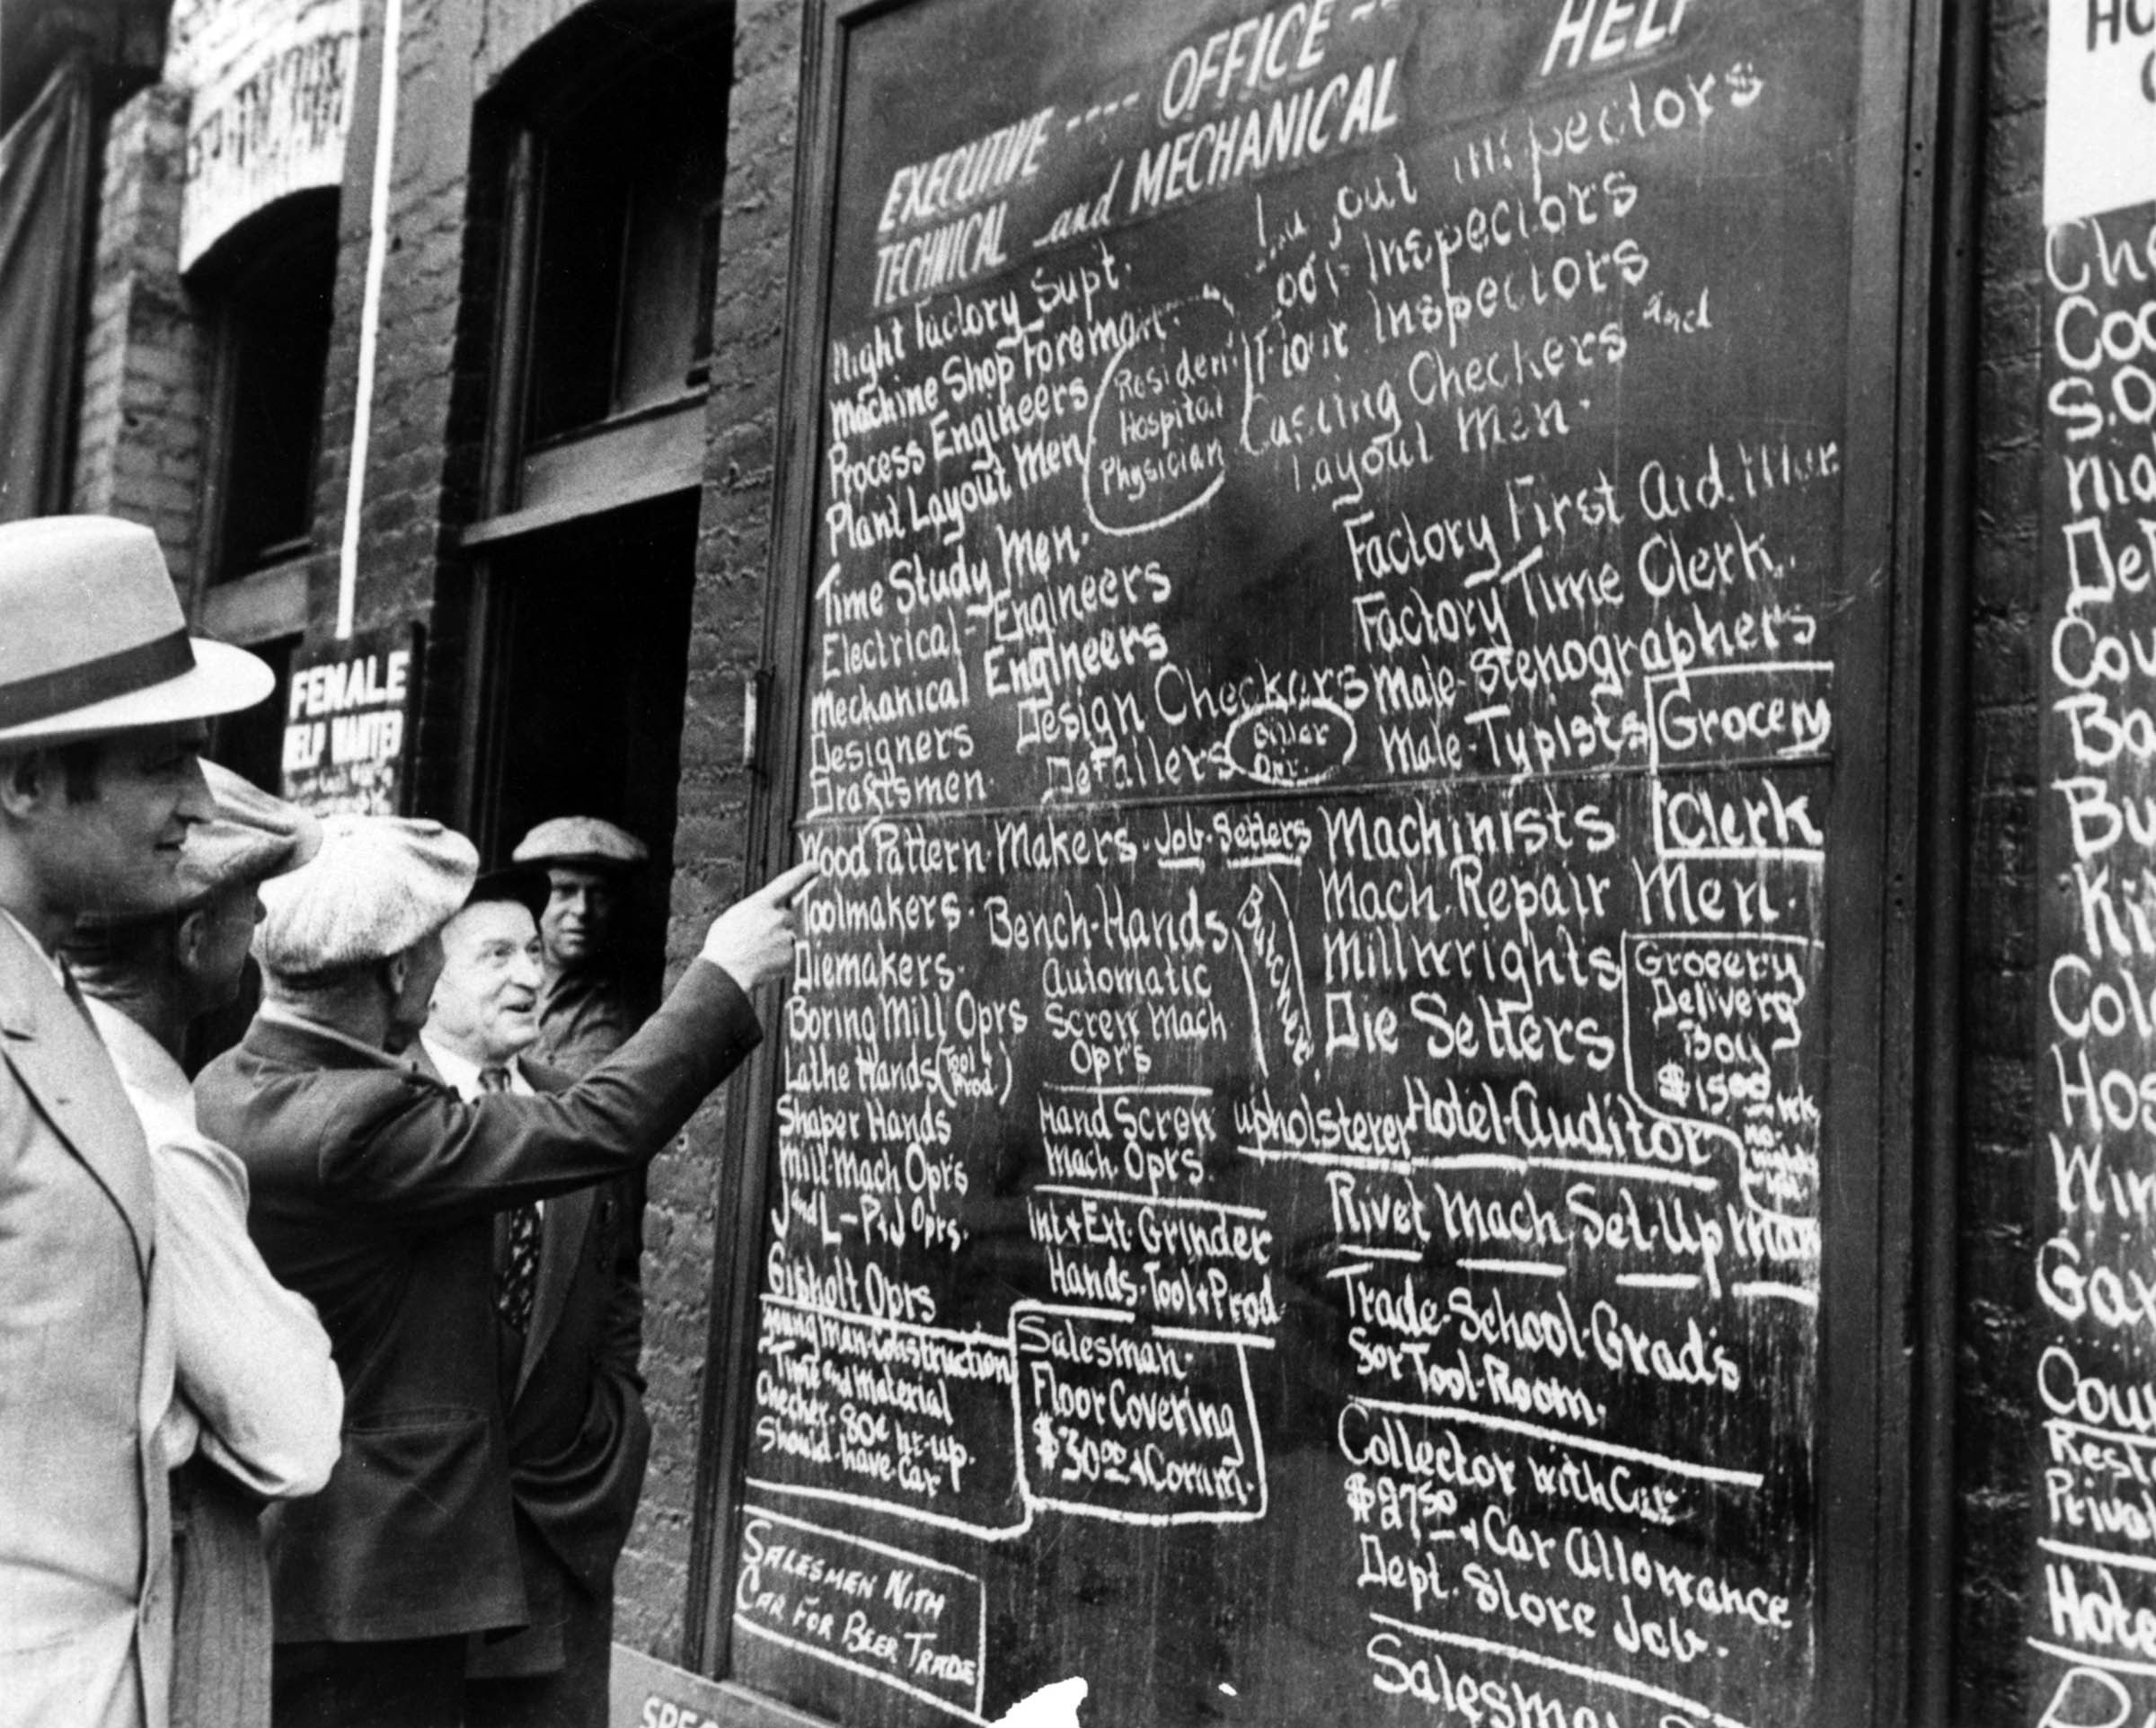 EXECUTIVE ---- OFFICE --
TECHNICAL and MECHANICAL HELP
Night Factory Supt.
Machine Shop Foreman.
Process Engineers
Plant Layout Men
Time Study Men.
Electrical-Engineers
Mechanical Engineers
Designers
Draftsmen.
Resident
Hospital
Physician
Design Checkers
Detailers
Layout Inspectors
Inspectors
Floor Inspectors
Casting Checkers and
Layout Men.
Factory First Aid
Factory Time Clerk.
Male-Stenographers
Male-Typists
Grocery
Clerk
Wood Pattern Makers. Job-Setters
Toolmakers.
Diemakers.
Boring Mill Oprs
Lathe Hands (Tool & Prod.)
Shaper Hands
Mill-Mach Opr's
J and L - P&J Oprs.
Gisholt Oprs
Bench-Hands
Automatic
Screw Mach
Opr's
Hand Screw
Mach. Oprs.
Int & Ext. Grinder
Hands-Tool & Prod.
Butcher
Machinists
Mach. Repair Men.
Millwrights
Die Setters
Grocery
Delivery
Boy
$15.00 wk
Upholsterer
Hotel-Auditor
Rivet Mach Set-Up Man
Trade-School-Grad's
for Tool-Room.
Young Man-Construction
Time and Material
Checker-80¢ hr-up.
Should-have-Car
Salesman-
Floor Covering
$30.00 & Comm.
Collector with Car
$27.50 & Car Allowance
Dept. Store Job.
SALESMEN WITH
CAR FOR BEER TRADE
FEMALE
HELP WANTED